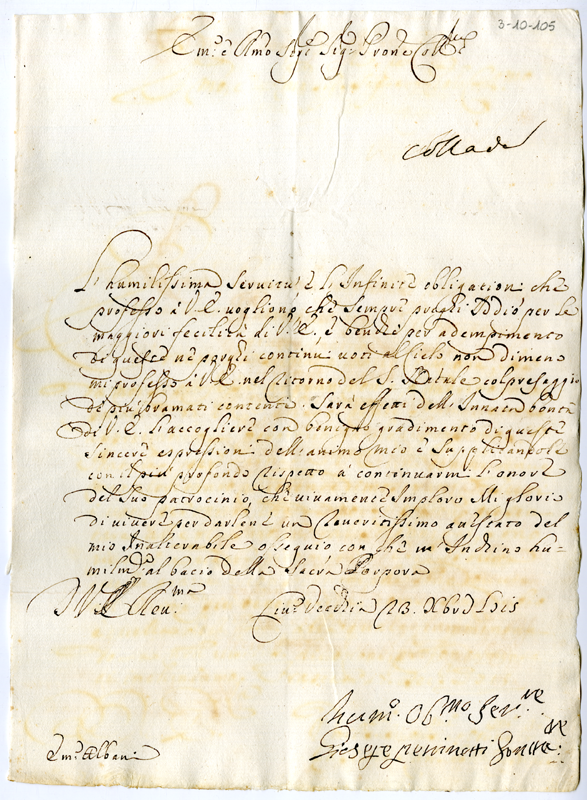 3-10-105
Em.o e Rmo Sig.r Sig.r Prone Coll.mo
L'humilissima servitù è l'infinite obligationi che
professo à V.E. vogliono che sempre preghi Iddio per le
maggiori felicità di V.E., è benche per adempimento
di queste ne porghi continui voti al Cielo non dimeno
mi professo à V.E. nel ritorno del S. Natale col presaggio
di più bramati contenti. Sarà effetti dell'Innata bontà
di V.E. l'accogliere con benigno gradimento di queste
sincere espressioni dell'animo mio è supplicandola
con il più profondo rispetto à continuarmi l'onore
del suo patrocinio, che vivamente Imploro Mi glorio
di vivere per darlene un reveritissimo attestato del
mio Inalterabile ossequio con che m'Inchino hu-
milm.te al bacio della Sacra Porpora
Di V.E. Rev.ma
Civ.a Vecchia 23 Xbre
Hum.o Ob.mo Ser.re
Giosepe
Em.o Albani